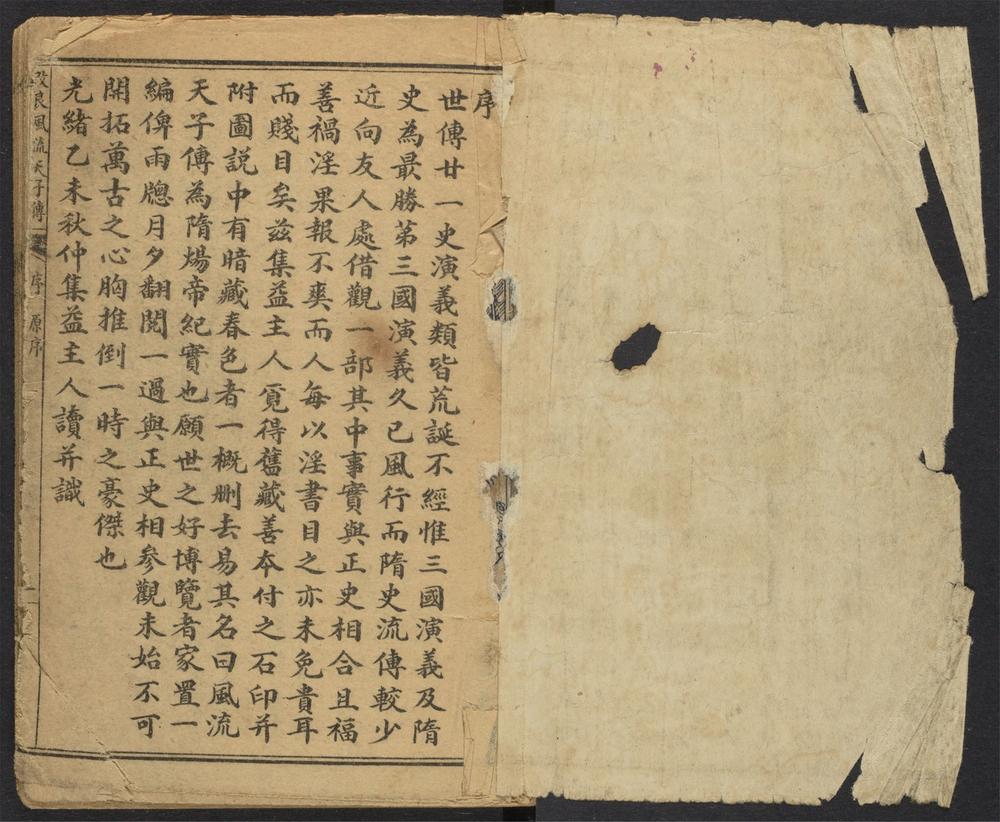 序
世傳廿一史演義類皆荒誕不經惟三國演義及隋
史為最勝第三國演義久已風行而隋史流傳較少
近向友人處借觀一部其中事實與正史相合且福
善禍淫果報不爽而人每以淫書目之亦未免貴耳
而賤目矣茲集益主人覓得舊藏善本付之石印并
附圖説中有暗藏春色者一概删去易其名曰風流
天子傳為隋煬帝紀實也願世之好博覽者家置一
編俾雨牕月夕翻閱一過與正史相參觀未始不可
開拓萬古之心胸推倒一時之豪傑也
光緒乙未秋仲集益主人讀并識
風流天子傳 序 原序